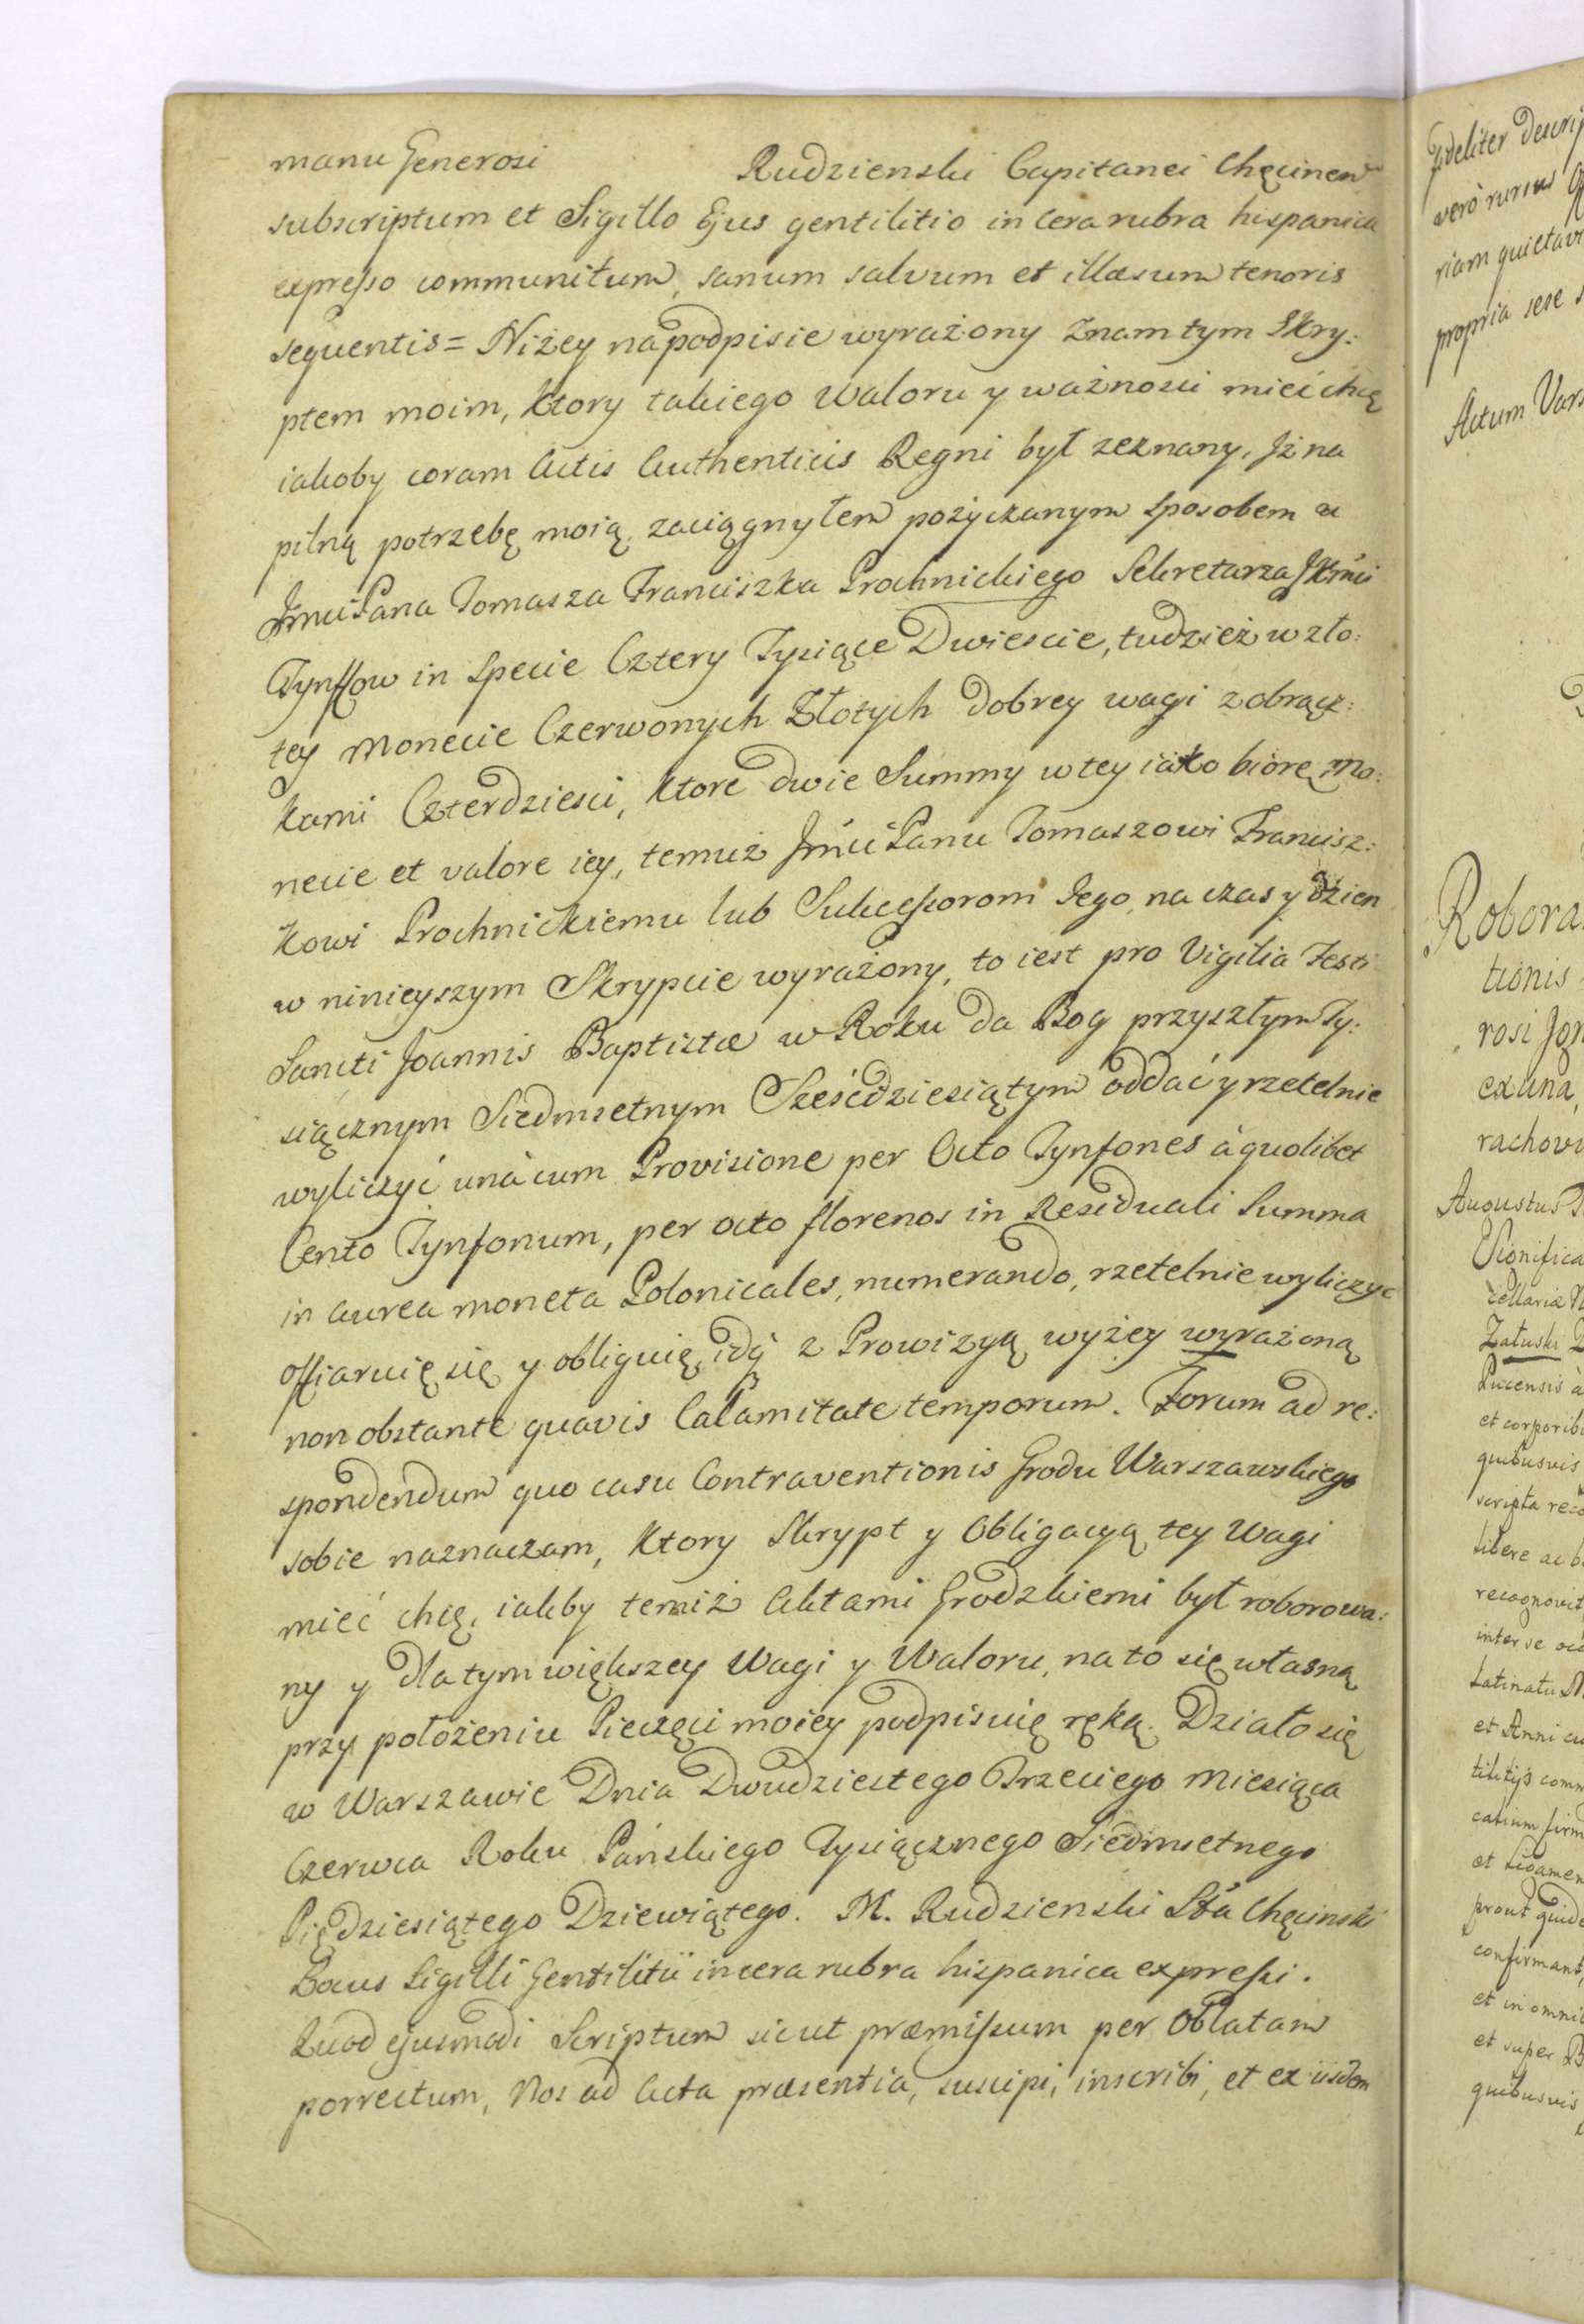 manu Generosi Rudzienski Capitanei Chęcinen
subscriptum et Sigillo Ejus gentilitio in cera rubra hispanica
expresso communitum, sanum salvum et illæsum tenoris
sequentis = Niżey na podpisie wyrażony znam tym Skry:
ptem moim, ktory takiego waloru y ważnosci mieć chcę
iakoby coram Actis Authenticis Regni był zeznany, Iż na
pilną potrzebę moią, zaciągnyłem pożyczanym sposobem u
Jmci Pana Tomasza Franciszka Prochnickiego Sekretarza JKMci
Tynffow in specie Cztery Tysiące Dwiescie, tudzież w zło:
tey monecie Czerwonych Złotych dobrey wagi z obrącz:
kami Czterdziesci, ktore dwie Summy w tey iako biorę mo:
necie et valore iey, temuż Jmci Panu Tomaszowi Francisz:
kowi Prochnickiemu lub Sukcessorom Jego, na czas y dzien
w ninieyszym Skrypcie wyrażony, to iest pro Vigilia Festi
Sancti Joannis Baptistæ w Roku da Bog przyszłym Ty:
siącznym Siedmsetnym Sześćdziesiątym oddać y rzetelnie
wyliczyć unà cum Provisione per Octo Tynfones à quolibet
Cento Tynfonum, per octo florenos in Residuali Summa
in aurea moneta Polonicales, numerando, rzetelnie wyliczyc
offiaruię się y obliguię, idq̃ z Prowizyą wyżey wyrażoną
non obstante quavis Calamitate temporum. Forum ad re:
spondendum quo casu Contraventionis Grodu Warszawskiego
sobie naznaczam, ktory Skrypt y Obligacyą tey Wagi
mieć chcę, iakby temiż Aktami Grodzkiemi był roborowa:
ny y dla tym większey Wagi y Waloru, na to się własną
przy położeniu Pieczęci moiey podpisuię ręką. Działo się
w Warszawie Dnia Dwudziestego Trzeciego Miesiąca
Czerwca Roku Pańskiego Tysiącznego Siedmsetnego
Piędziesiątego Dziewiątego. M. Rudzienski Stta Chęcinski
Locus Sigilli Gentilitii in cera rubra hispanica expressi.
Quod ejusmodi Scriptum sicut præmissum per Oblatam
porrectum, Nos ad Acta præsentia, suscipi, inscribi, et ex iisdem
vero rursus
riam quietavi
propria sese
Actum Vars
Robora
tionis
rosi Jgn
ex una,
Augustus
Załuski
et corporib
quibusvis
scripta reco
libere ac b
recognovit
inter se
et Anni
prout quide
confirmant,
et in omni
et super
quibusvis